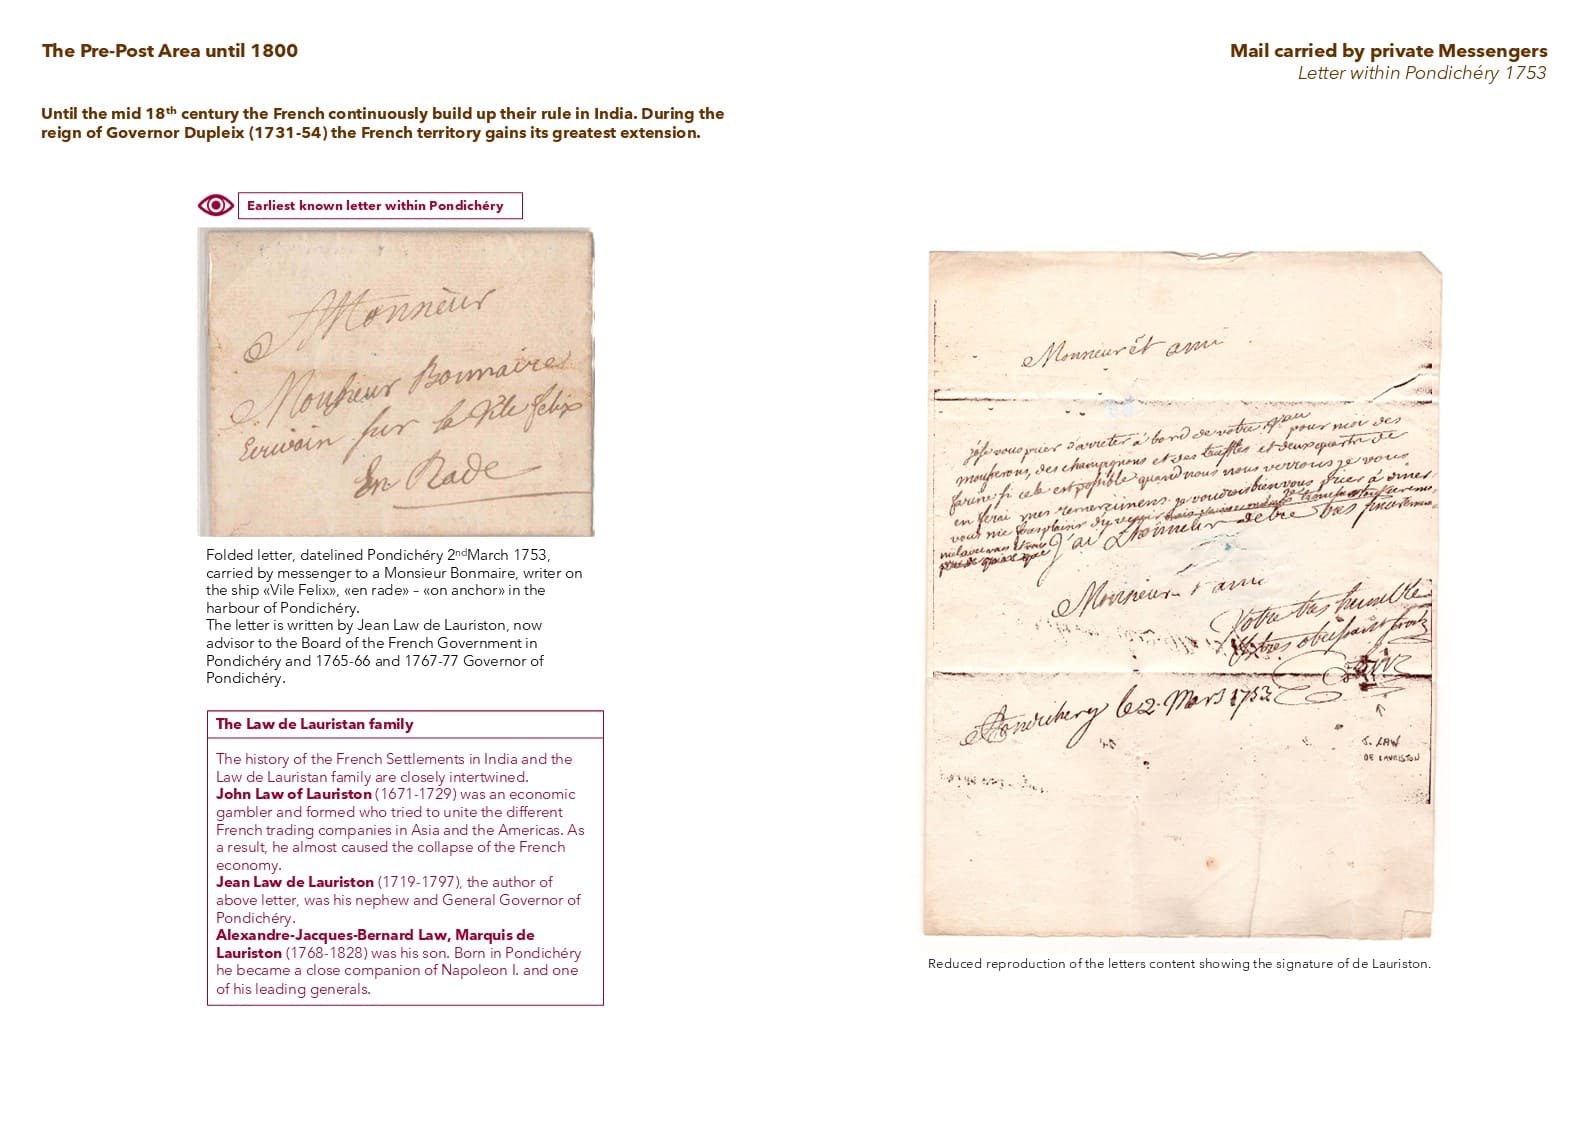 The Pre-Post Area until 1800
Mail carried by private Messengers
Letter within Pondichéry 1753
Until the mid 18th century the French continuously build up their rule in India. During the
reign of Governor Dupleix (1731-54) the French territory gains its greatest extension.
Earliest known letter within Pondichéry
Monsieur
Monsieur Bonmaire
Ecrivain sur la Vile felix
En Rade
Folded letter, datelined Pondichéry 2ndMarch 1753,
carried by messenger to a Monsieur Bonmaire, writer on
the ship «Vile Felix», «en rade» – «on anchor» in the
harbour of Pondichéry.
The letter is written by Jean Law de Lauriston, now
advisor to the Board of the French Government in
Pondichéry and 1765-66 and 1767-77 Governor of
Pondichéry.
The Law de Lauristan family
The history of the French Settlements in India and the
Law de Lauristan family are closely intertwined.
John Law of Lauriston (1671-1729) was an economic
gambler and formed who tried to unite the different
French trading companies in Asia and the Americas. As
a result, he almost caused the collapse of the French
economy.
Jean Law de Lauriston (1719-1797), the author of
above letter, was his nephew and General Governor of
Pondichéry.
Alexandre-Jacques-Bernard Law, Marquis de
Lauriston (1768-1828) was his son. Born in Pondichéry
he became a close companion of Napoleon I. and one
of his leading generals.
Monsieur et ami
vous prier d'arreter à bord de votre pour moi des
mousserons, des champignons et des truffles et deux quartn de
farine si cela est possible quand nous nous verrons je vous
en ferai mes remerciments je voudrois bien vous prier à diner
vous me
J'ai L'honneur detre tres
Monsieur et ami
Votre tres humble
et tres obeissant
Pondichery le 2 Mars 1753
J. LAW
DE LAURISTON
Reduced reproduction of the letters content showing the signature of de Lauriston.